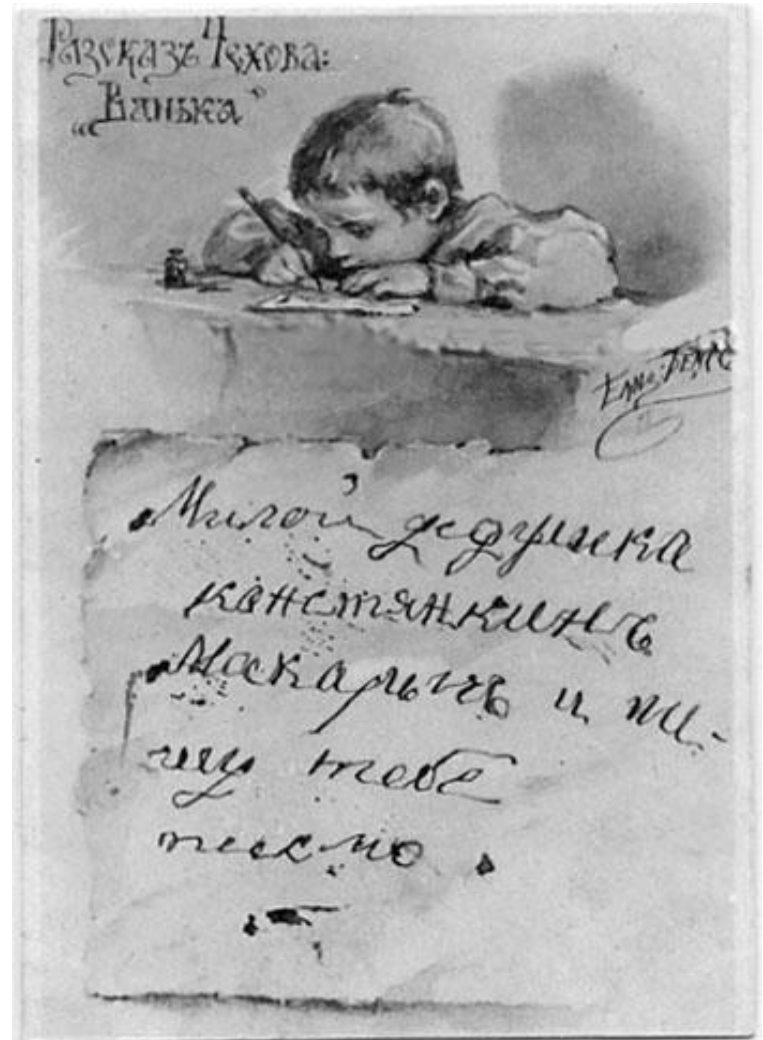 Разсказъ Чехова:
„Ванька"
Милой дедушка
констянкинъ
Макарычъ и пи-
шу тебе
письмо.